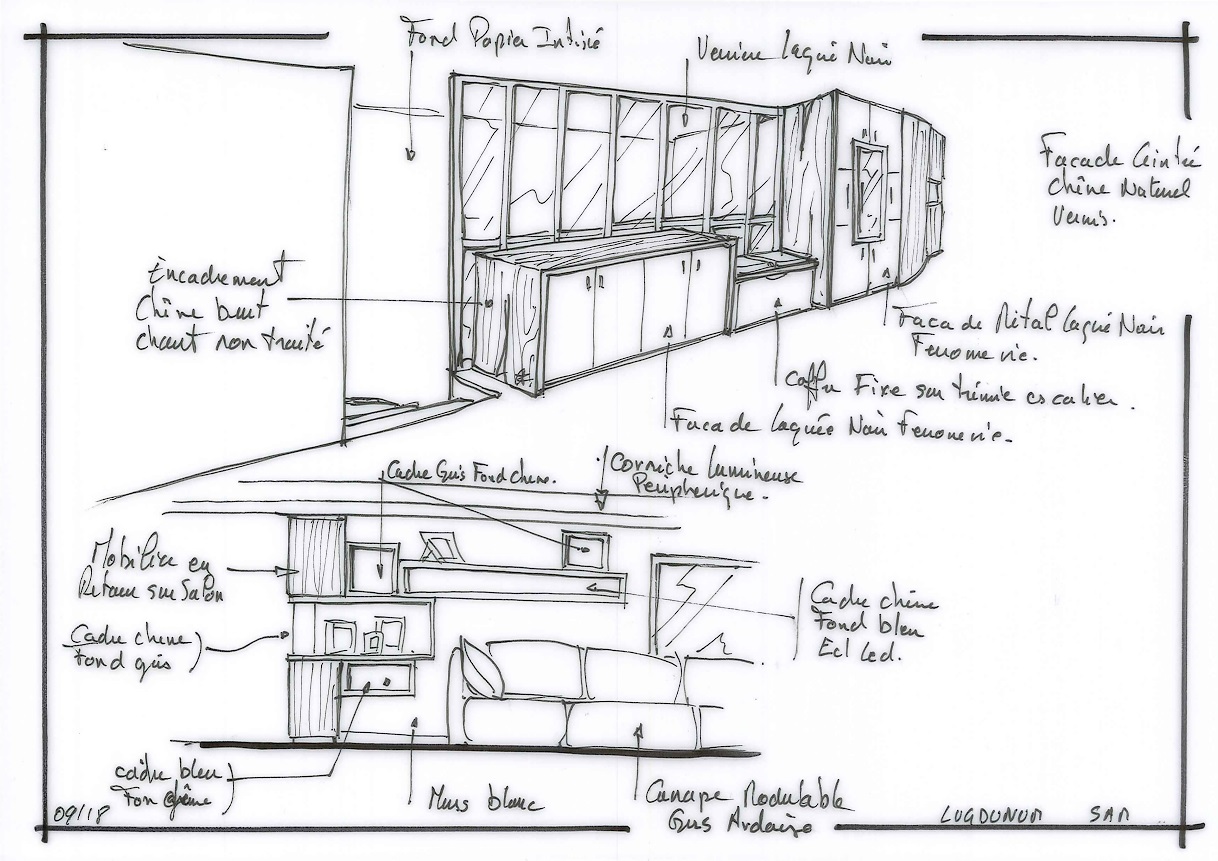 Fond Papier Intissé
Verrière Laqué Noir
Façade Ceintrée
Chêne Naturel
Vernis.
Encadrement
Chêne brut
chant non traité
Facade Métal Laqué Noir
Ferronnerie.
Coffre Fixe sur trémie escalier.
Facade Laquée Noir Ferronnerie.
Cadre Gris Fond chêne.
Corniche Lumineuse
Périphérique.
Mobilier en
Retour sur Salon
Cadre chêne
Fond gris
Cadre chêne
Fond bleu
Ecl Led.
cadre bleu
Fond chêne
Murs blanc
Canapé Modulable
Gris Ardoise
09/18
LUGDUNUM SAM